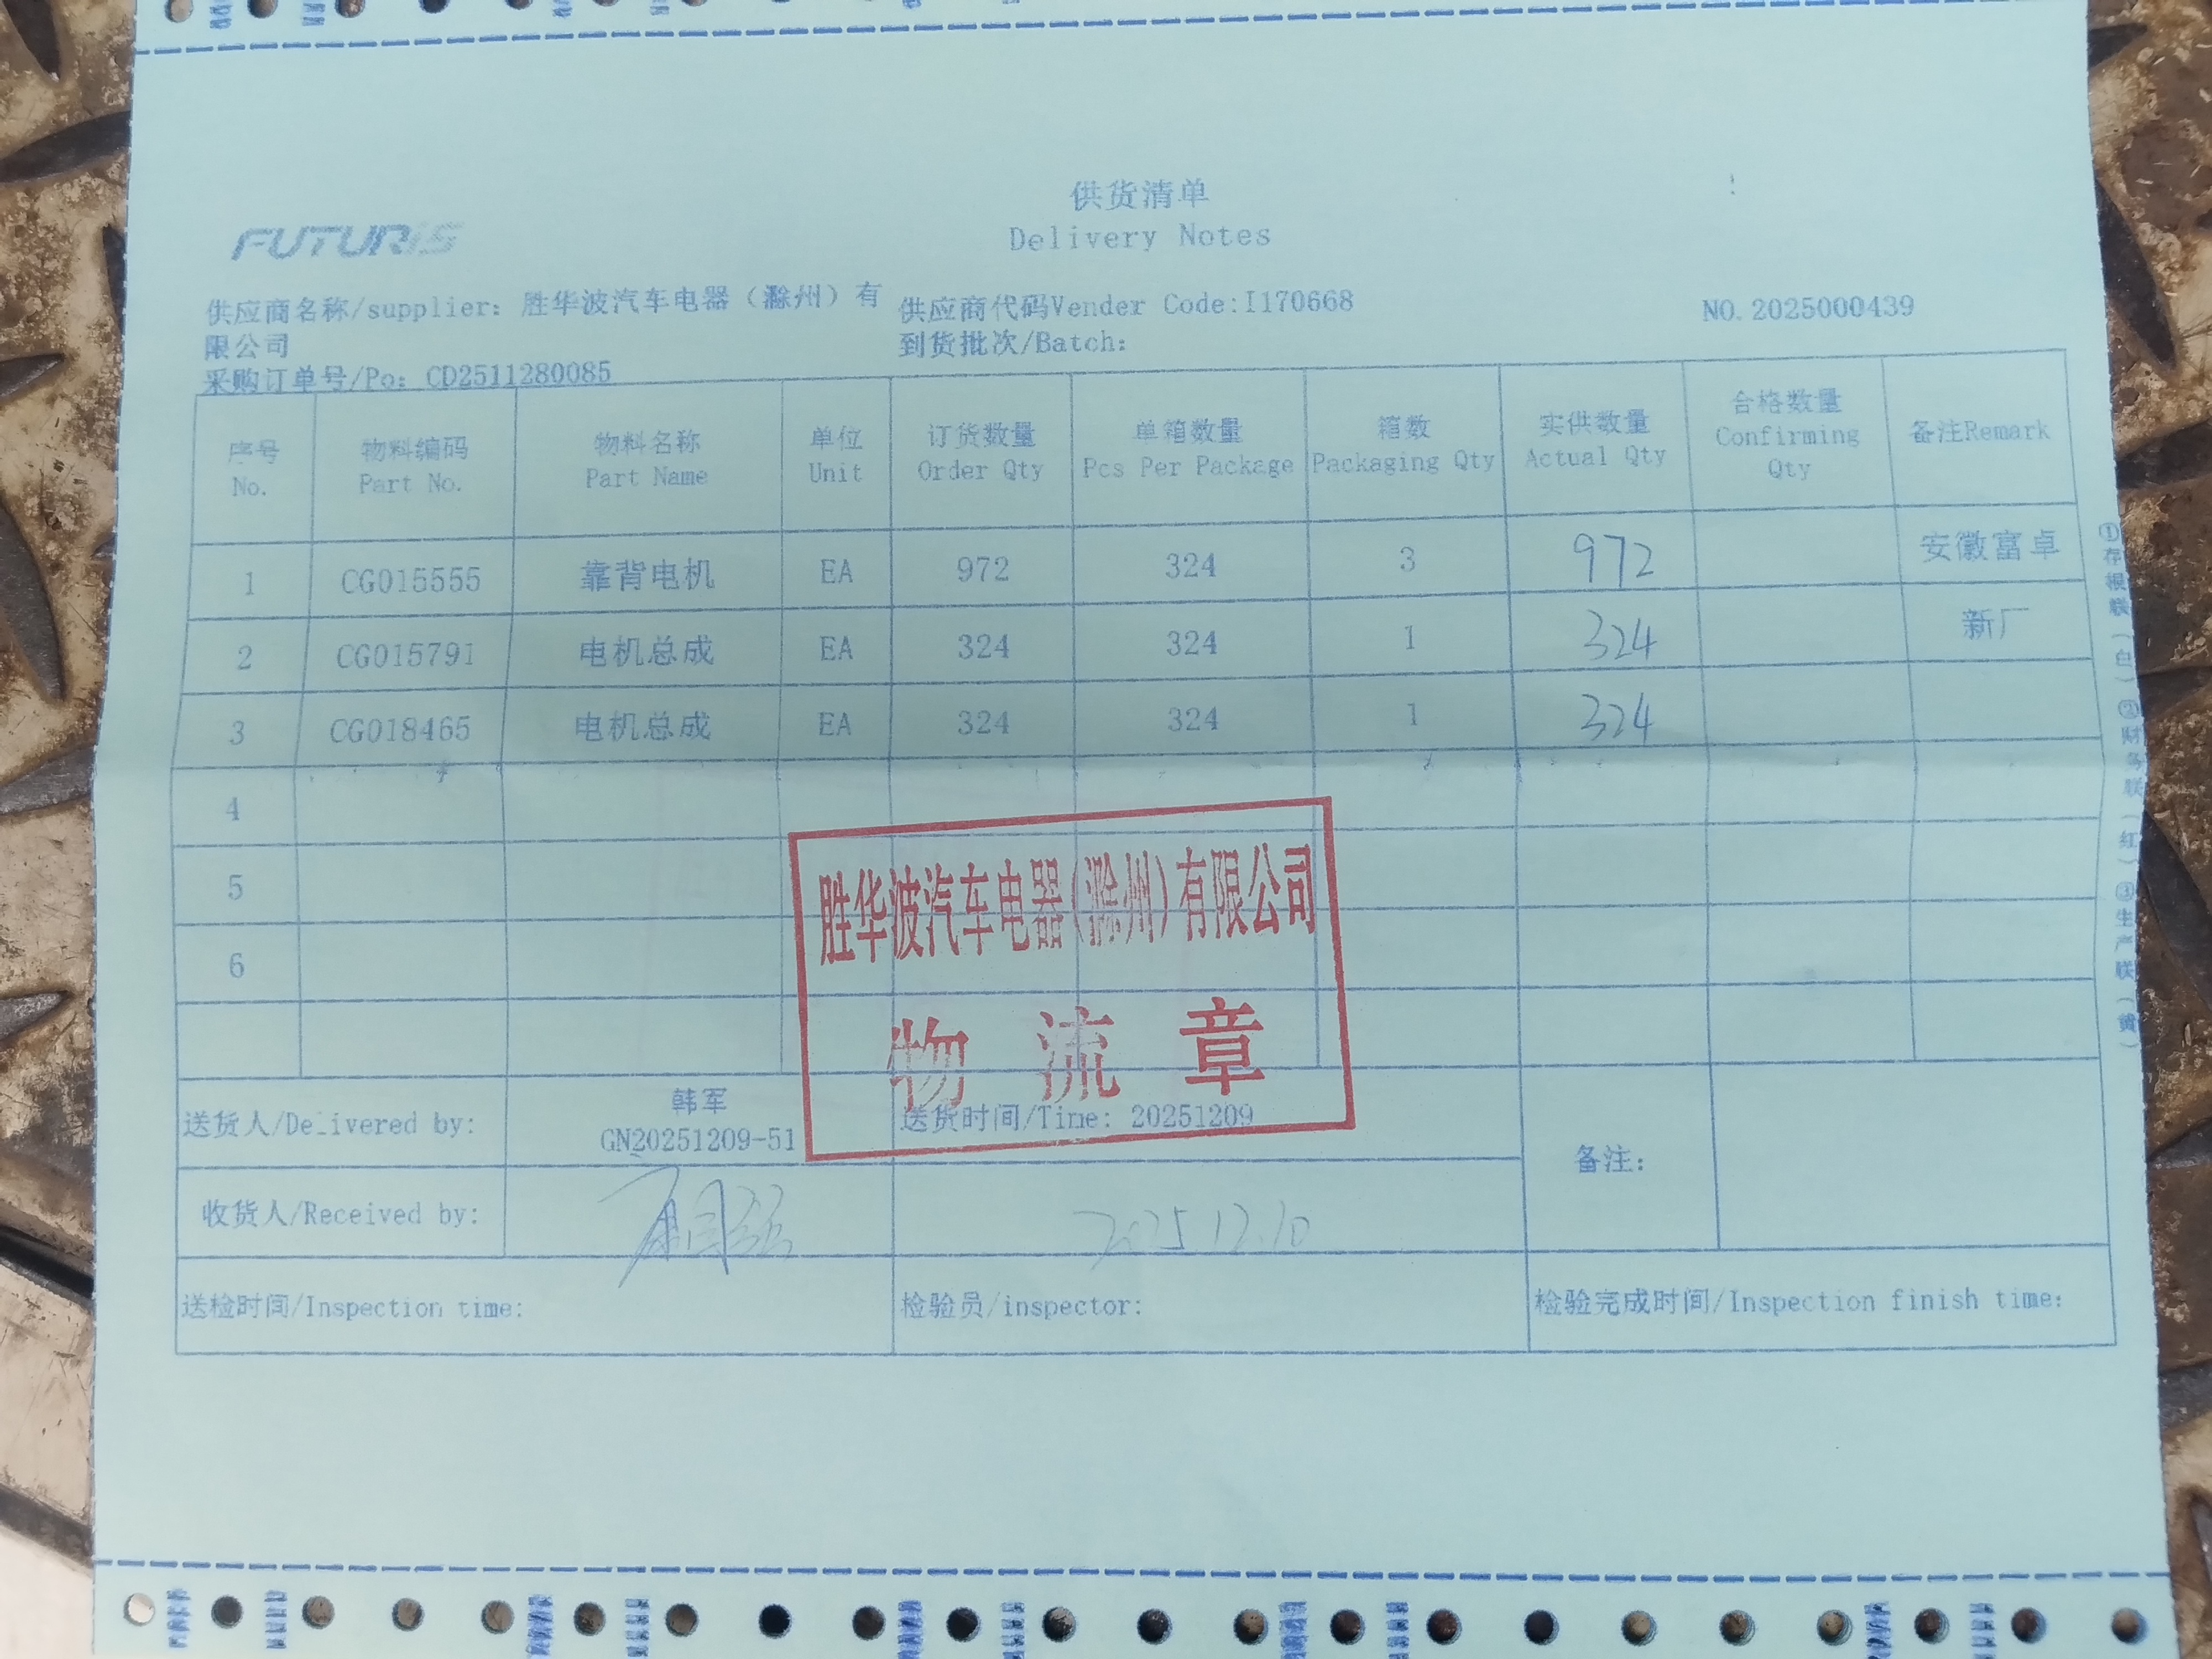 供货清单
Delivery Notes
FUTURIS
供应商名称/supplier: 胜华波汽车电器（滁州）有
限公司
供应商代码Vender Code:I170668
NO.2025000439
到货批次/Batch:
采购订单号/Po: CD2511280085
序号 物料编码 物料名称 单位 订货数量 单箱数量 箱数 实供数量 合格数量 备注Remark
No. Part No. Part Name Unit Order Qty Pcs Per Package Packaging Qty Actual Qty Confirming Qty
1 CG015555 靠背电机 EA 972 324 3 972 安徽富卓
2 CG015791 电机总成 EA 324 324 1 324 新厂
3 CG018465 电机总成 EA 324 324 1 324
4
5
6
胜华波汽车电器(滁州)有限公司
物流章
送货人/Delivered by: 韩军
GN20251209-51
送货时间/Time: 20251209
备注:
收货人/Received by: 2025 12.10
送检时间/Inspection time: 检验员/inspector: 检验完成时间/Inspection finish time:
①存根联（白）②财务联（红）③生产联（黄）